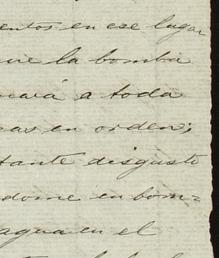 entos en ese lugar
que la bomba
a toda
en orden;
tante disgusto
dome en bom=
agua en el